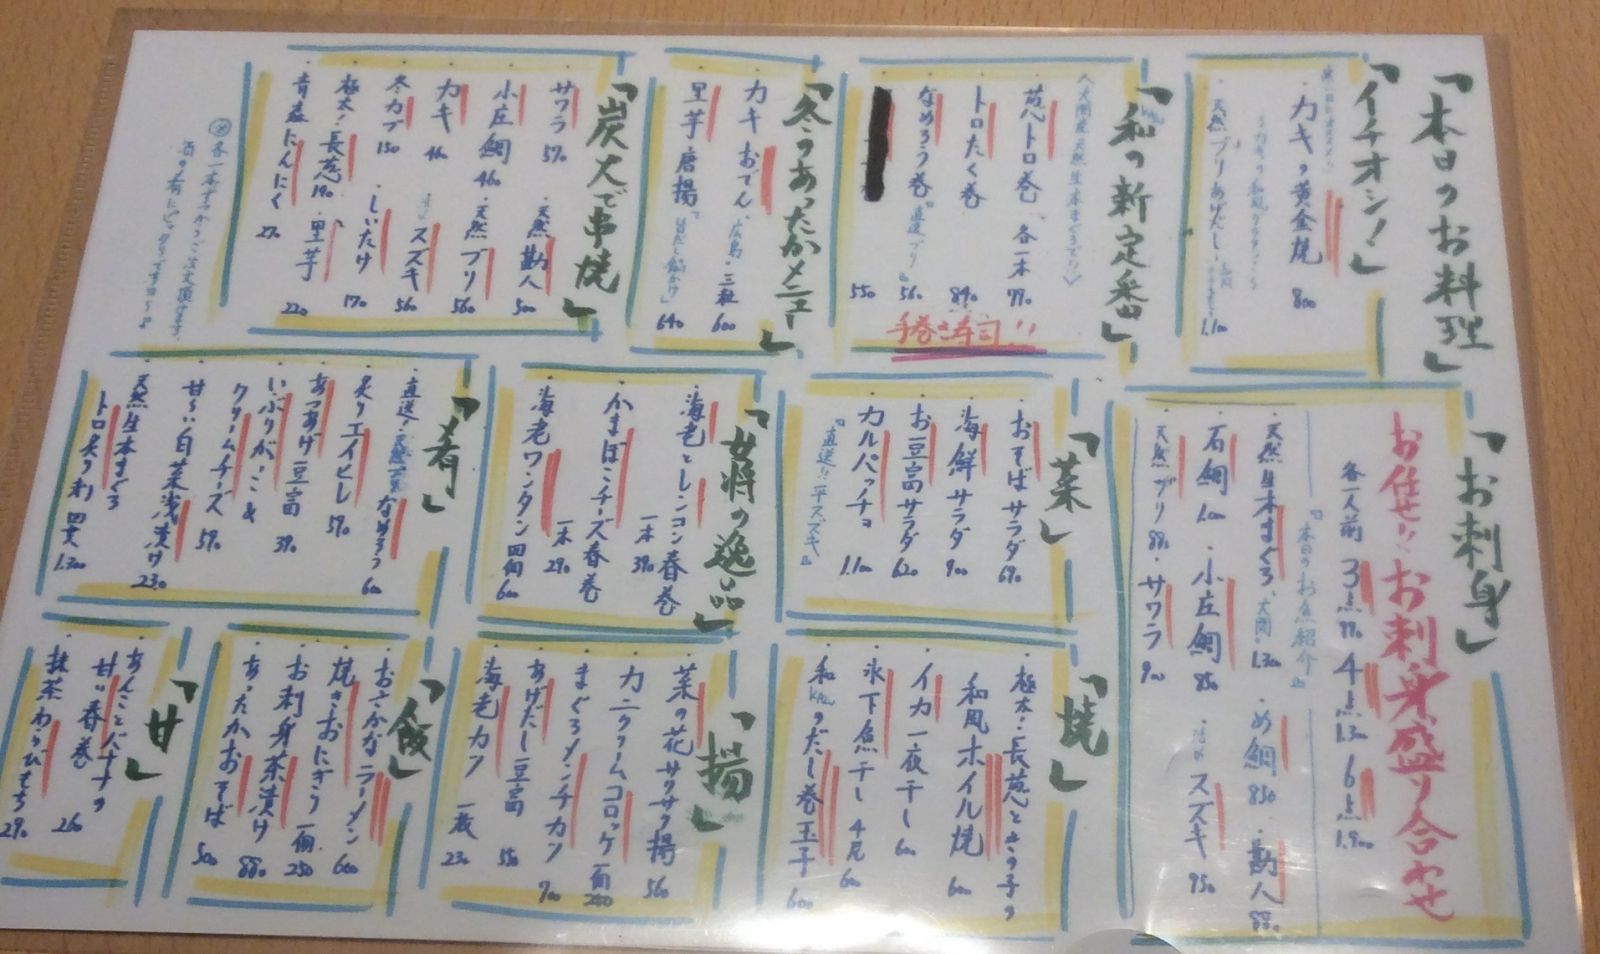 「本日のお料理」
「イチオシ！」
カキの黄金焼 800
天然ブリあげだし 1.100
「和の新定番」
〈大間産天然生本まぐろです！〉
葱トロ巻 各一本 770
トロたく巻 840
なめろう巻『直送ブリ』 560
550
手巻き寿司!!
「冬のあったかメニュー」
カキおでん 広島・三粒 600
里芋唐揚『旨だし餡かけ』 640
「炭火で串焼」
・サワラ 570
・天然勘八 500
・小庄鯛 460
・天然ブリ 560
・カキ 460
スズキ 560
・冬カブ 150
・しいたけ 170
極太！長葱 190
・里芋 220
・青森にんにく 270
各一本ずつからご注文頂けます。
「お刺身」
お任せ！お刺身盛り合わせ
各一人前 3点 990 4点 1.300 6点 1.900
『本日のお魚紹介』
・天然生本まぐろ、大間 1.300
・め鯛 850
・勘八 880
・石鯛 1.000
・小庄鯛 850
スズキ 950
・天然ブリ 880
・サワラ 900
「菜」
・おそばサラダ 690
・海鮮サラダ 900
・お豆富サラダ 620
・カルパッチョ 1.100
『直送!!平スズキ』
「女将の逸品」
・海老とレンコン春巻 一本 390
・かまぼこチーズ春巻 一本 290
・海老ワンタン 四個 600
「肴」
・直送！天然ブリなめろう 600
・炙りエイヒレ 570
・あつあげ豆富 390
・いぶりがっこ&
クリームチーズ 570
・甘〜い白菜浅漬け 230
・天然生本まぐろ
トロ炙り刺 四貫 1.300
「焼」
・極太！長葱ときの子の
和風ホイル焼 600
・イカ一夜干し 600
・氷下魚干し 4尾 600
・和のだし巻玉子 600
「揚」
・菜の花サクサク揚 560
・カニクリームコロッケ 一個 280
・まぐろメンチカツ 700
・あげだし豆富 550
・海老カツ 一枚 230
「飯」
・おさかなラーメン 600
・焼きおにぎり 一個 250
・お刺身茶漬け 880
・あったかおそば 500
「甘」
・あんことバナナの
甘い春巻 260
・抹茶わらびもち 290